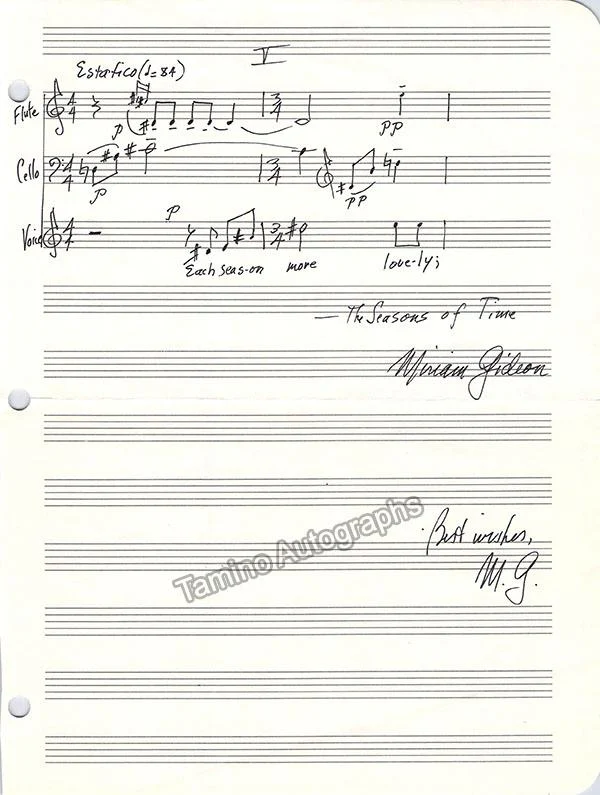 V
Estatico (♩=84)
Flute 4/4 p 3/4 pp
Cello 4/4 p 3/4 pp
Voice 4/4 p 3/4
Each seas-on more love-ly;
— The Seasons of Time
Miriam Gideon
Best wishes,
M. G.
Tamino Autographs